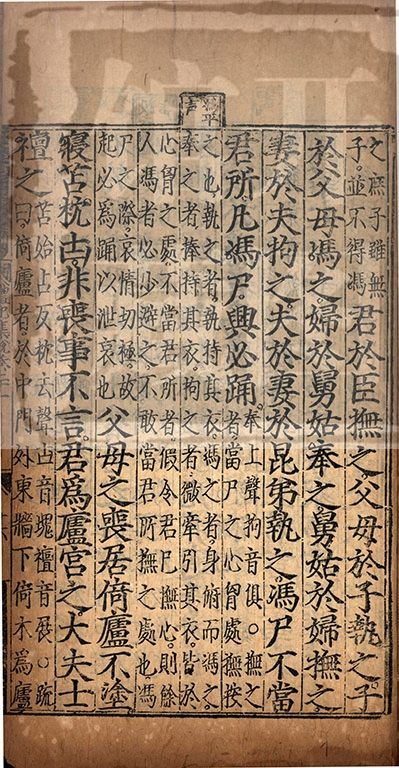 之庶子雖無
子並不得馮
君於臣撫之父母於子執之子
於父母馮之婦於舅姑奉之舅姑於婦撫之
妻於夫拘之夫於妻於昆弟執之馮尸不當
君所凡馮尸興必踊
奉上聲拘音俱○撫之
者當尸之心胷處撫按
之也執之者執持其衣馮之者身俯而馮之
奉之者捧持其衣拘之者微牽引其衣皆於
心胷之處不當君所者假令君巳撫心則餘
人馮者必少避之不敢當君所撫之處也馮
尸之際哀情切極故
起必爲踊以泄哀也
父母之喪居倚廬不塗
寢苫枕凷非喪事不言君爲廬宮之大夫士
襢之
苫始占反枕去聲凷音塊襢音展○疏
曰倚廬者於中門外東牆下倚木爲廬